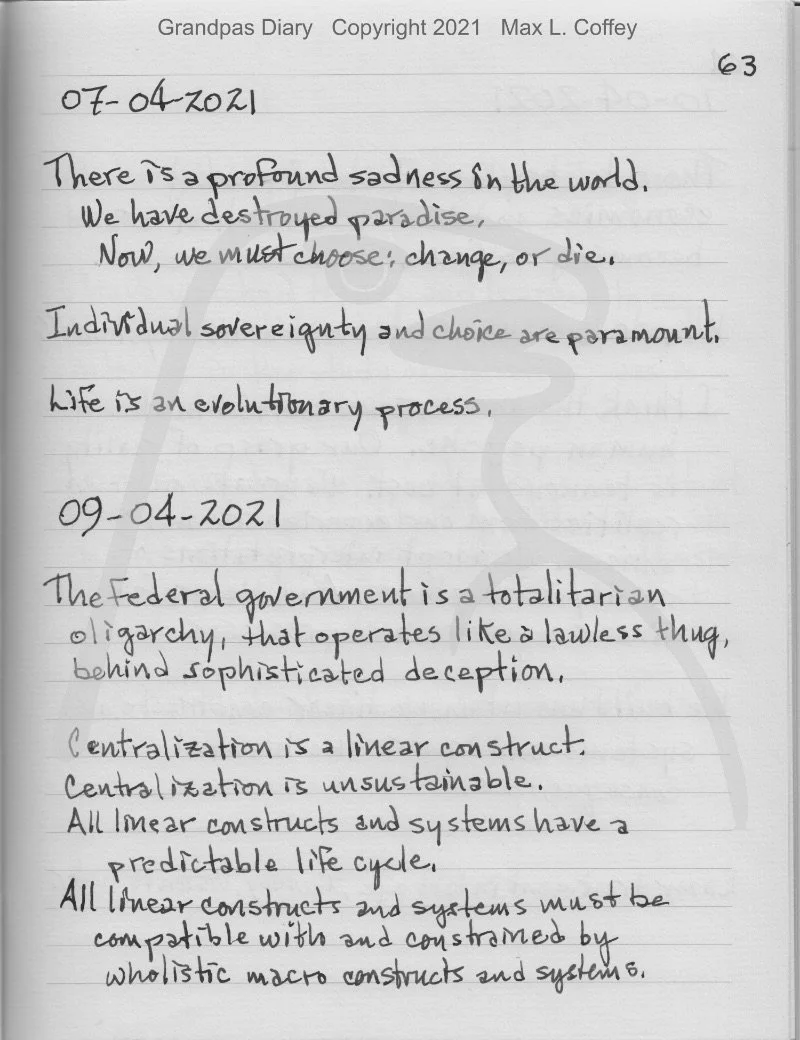 Grandpas Diary Copyright 2021 Max L. Coffey
63
07-04-2021
There is a profound sadness in the world.
We have destroyed paradise.
Now, we must choose: change, or die.
Individual sovereignty and choice are paramount.
Life is an evolutionary process.
09-04-2021
The Federal government is a totalitarian
oligarchy, that operates like a lawless thug,
behind sophisticated deception.
Centralization is a linear construct.
Centralization is unsustainable.
All linear constructs and systems have a
predictable life cycle.
All linear constructs and systems must be
compatible with and constrained by
wholistic macro constructs and systems.